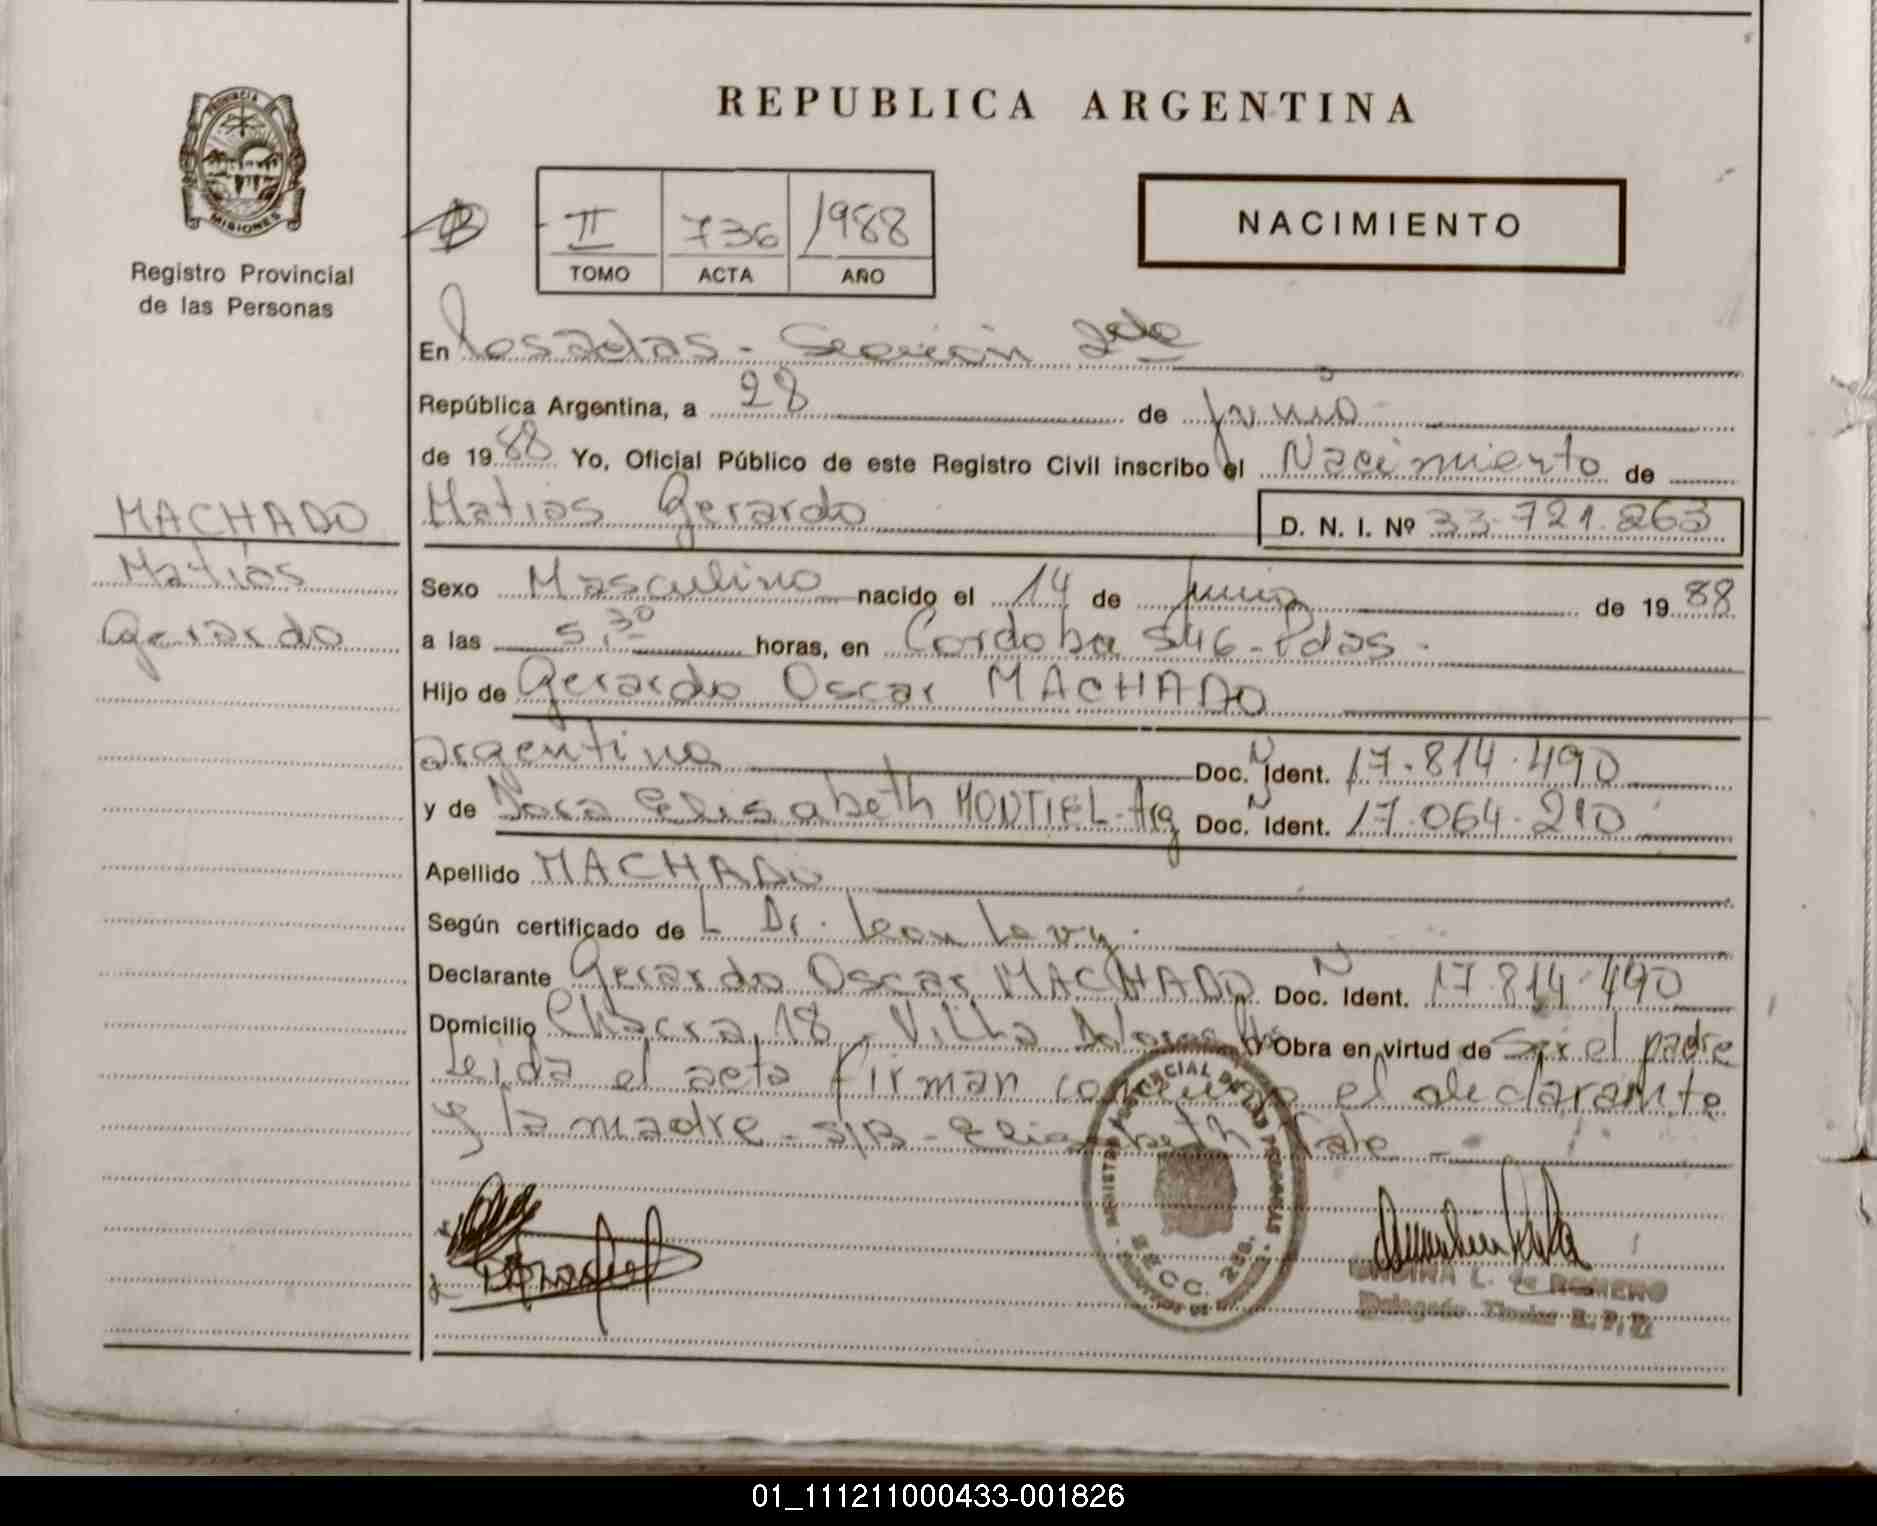 REPUBLICA ARGENTINA
PROVINCIA DE MISIONES
Registro Provincial
de las Personas
II 736 1988
TOMO ACTA AÑO
NACIMIENTO
En Posadas - Sección 2da
República Argentina, a 28 de Junio
de 1988 Yo, Oficial Público de este Registro Civil inscribo el Nacimiento de
MACHADO
Matias
Gerardo
Matias Gerardo D. N. I. Nº 33.721.263
Sexo Masculino nacido el 14 de Junio de 1988
a las 5,30 horas, en Cordoba 546 - Pdas -
Hijo de Gerardo Oscar MACHADO
argentino Doc. Ident. N 17.814.490
y de Dora Elisabeth MONTIEL - Arg Doc. Ident. N 17.064.210
Apellido MACHADO
Según certificado de L Dr. Leon Levy.
Declarante Gerardo Oscar MACHADO Doc. Ident. N 17.814.490
Domicilio Chacra 18 - Villa Obra en virtud de Ser el padre
Leida el acta firman conmigo el declarante
y la madre - S/B - Elisabeth Vale -
REGISTRO PROVINCIAL DE LAS PERSONAS
SECC. 2da.
L. de ROMERO
Delegada Titular R. P. P.
01_111211000433-001826